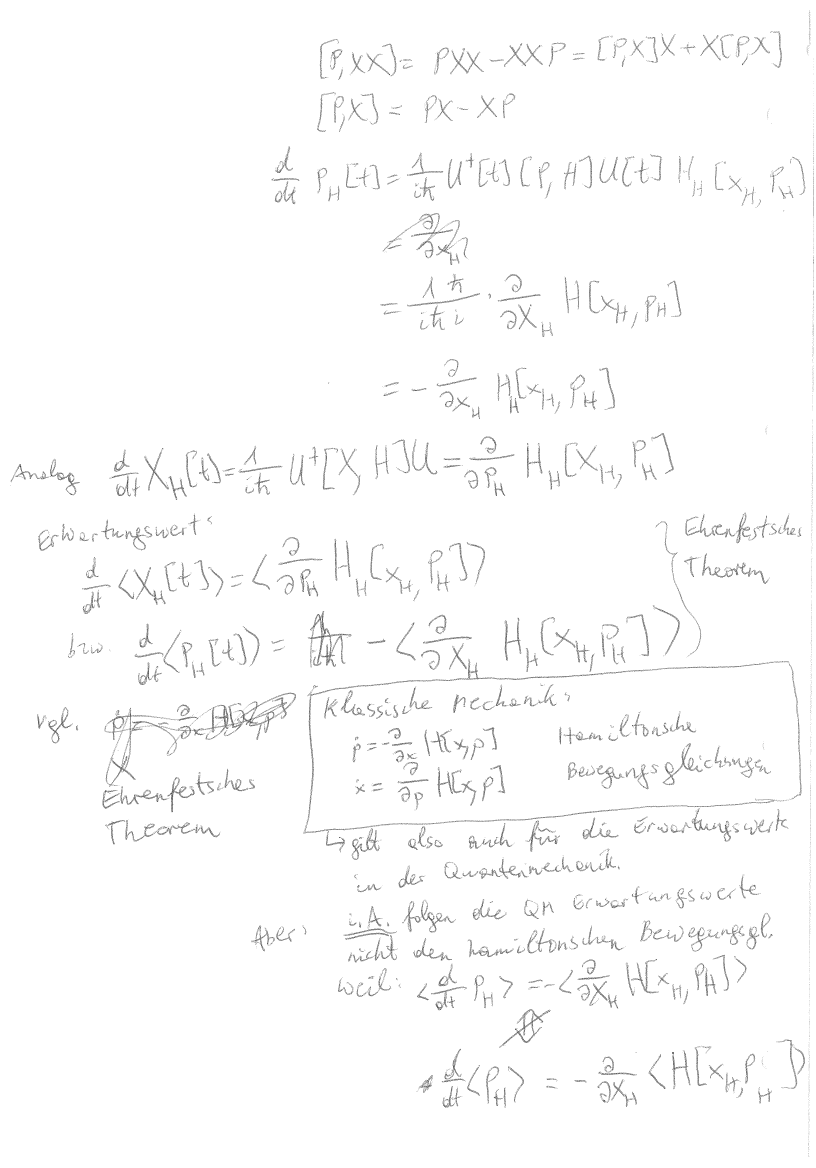 [P,XX] = PXX - XXP = [P,X]X + X[P,X]
[P,X] = PX - XP
d/dt P_H[t] = 1/(iħ) U†[t] [P,H] U[t] H_H [x_H, P_H]
= ∂/∂x_H
= 1/(iħ) ħ/i · ∂/∂X_H H[x_H, p_H]
= - ∂/∂x_H H_H[x_H, P_H]
Analog d/dt X_H[t] = 1/(iħ) U†[X, H]U = ∂/∂P_H H_H[X_H, P_H]
Erwartungswert:
d/dt <X_H[t]> = <∂/∂P_H H_H[x_H, P_H]>
Ehrenfestsches
Theorem
bzw. d/dt <P_H[t]> = - <∂/∂X_H H_H[x_H, P_H]>
vgl.
Ehrenfestsches
Theorem
Klassische Mechanik:
ṗ = - ∂/∂x H[x,p]
ẋ = ∂/∂p H[x,p]
Hamiltonsche
Bewegungsgleichungen
↳ gilt also auch für die Erwartungswerte
in der Quantenmechanik.
Aber: i.A. folgen die QM Erwartungswerte
nicht den hamiltonschen Bewegungsgl.
weil: <d/dt P_H> = - <∂/∂X_H H[x_H, P_H]>
d/dt <P_H> = - ∂/∂X_H <H[x_H, P_H]>